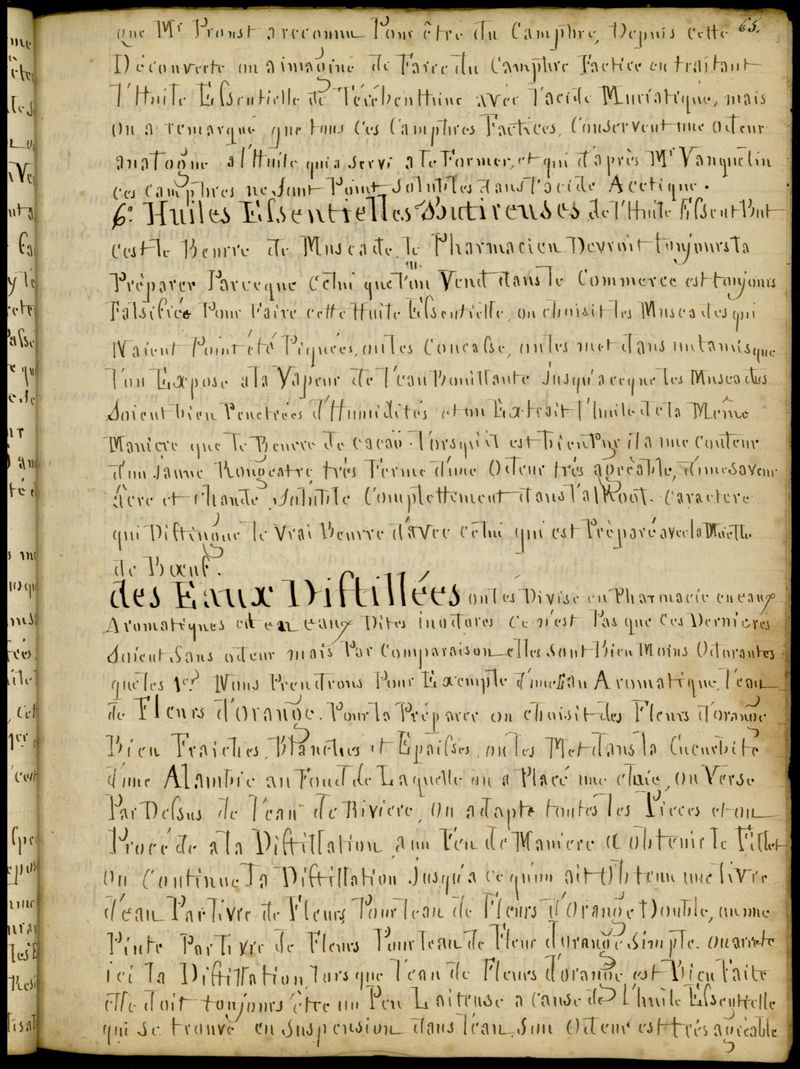 65.
que Mr Proust a reconnu Pour être du Camphre, Depuis cette
Découverte on a imaginé de Faire du Camphre Factice en traitant
l'Huile Essentielle de Térébenthine avec l'acide Muriatique, mais
on a remarqué que tous ces Camphres Factices, Conservent une odeur
analogue a l'Huile qui a servi a le Former, et qui d'après Mr Vauquelin
ces Camphres ne sont Point solubles dans l'acide Acetique.
6° Huiles Essentielles Butireuses de l'Huile Essent But
C'est le Beurre de Muscade, le Pharmacien Devroit toujours la
Préparer Parceque Celui que l'on Vend dans le Commerce est toujours
Falsifiée Pour Faire cette Huile Essentielle, on choisit les Muscades qui
N'aient Point été Piquées, on les Concasse, on les met dans un tamis que
l'on Expose a la Vapeur de l'eau Bouillante Jusqu'a ceque les Muscades
Soient bien Penetrées d'Humidités et on Extrait l'huile de la Même
Maniere que le Beurre de Cacao. lorsqu'il est bien Pur il a une Couleur
d'un Jaune Rougeatre très Ferme d'une Odeur très agréable, d'une saveur
âcre et Chaude, Soluble Complettement dans l'alkool. Caractere
qui Distingue le Vrai Beurre d'avec Celui qui est Préparé avec la Moëlle
de Bœuf.
des Eaux Distillées on les Divise en Pharmacie en eaux
Aromatiques et en eaux Dites inodores Ce n'est Pas que Ces Dernieres
Soient Sans odeur mais Par Comparaison elles sont Bien Moins Odorantes
que les 1eres Nous Prendrons Pour Exemple d'une Eau Aromatique, l'eau
de Fleurs d'orange. Pour la Préparer on choisit des Fleurs d'orange
Bien Fraiches, Blanches et Epaisses, on les Met dans la Cucurbite
d'une Alambic au Fond de Laquelle on a Placé une claie, on Verse
Par Dessus de l'eau de Riviere, On adapte toutes les Pieces et on
Procéde a la Distillation a un Feu de Maniere a obtenir le Fillet
On Continue la Distillation Jusqu'a ce qu'on ait Obtenu une livre
d'eau Par livre de Fleurs Pour l'eau de Fleurs d'Orange Double, ou une
Pinte Par livre de Fleurs Pour l'eau de Fleur d'orange Simple. On arrete
ici la Distillation, lorsque l'eau de Fleurs d'orange est Bien Faite
elle doit toujours être un Peu Laiteuse a Cause de l'huile Essentielle
qui se trouve en Suspension dans l'eau, Son Odeur est très agréable